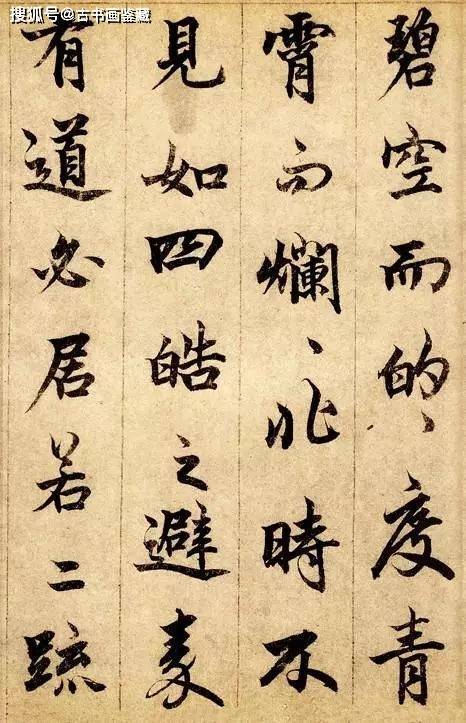 搜狐号@古书画鉴藏
碧空而的々度青
霄而爛々非時不
見如四皓之避秦
有道必居若二疏